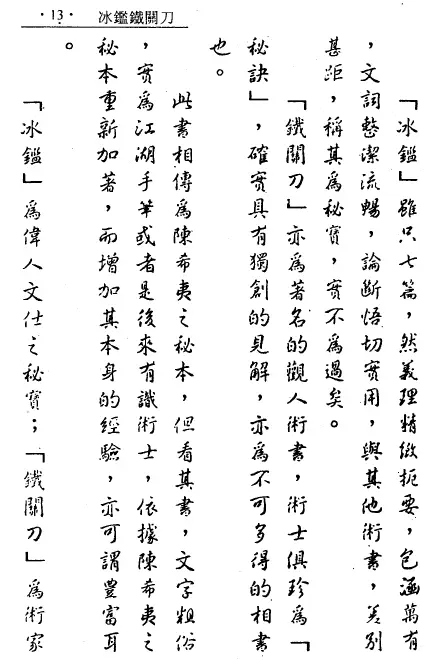 ·13· 冰鑑鐵關刀
「冰鑑」雖只七篇，然義理精緻扼要，包涵萬有
，文詞整潔流暢，論斷悟切實用，與其他術書，差別
甚距，稱其為秘寶，實不為過矣。
「鐵關刀」亦為著名的觀人術書，術士俱珍為「
秘訣」，確實具有獨創的見解，亦為不可多得的相書
也。
此書相傳為陳希夷之秘本，但看其書，文字粗俗
，實為江湖手筆或者是後來有識術士，依據陳希夷之
秘本重新加著，而增加其本身的經驗，亦可謂豐富耳
。
「冰鑑」為偉人文仕之秘寶；「鐵關刀」為術家